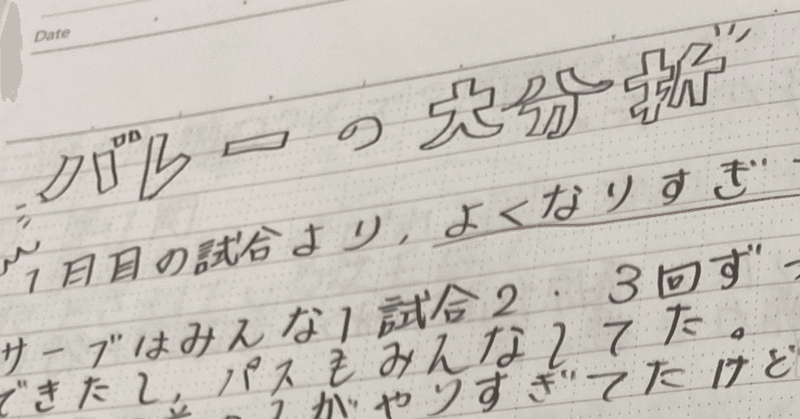 Date
バレーの大分析
1日目の試合より,よくなりすぎ
サーブはみんな1試合2・3回ずつ
できたし,パスもみんなしてた。
がやりすぎてたけど